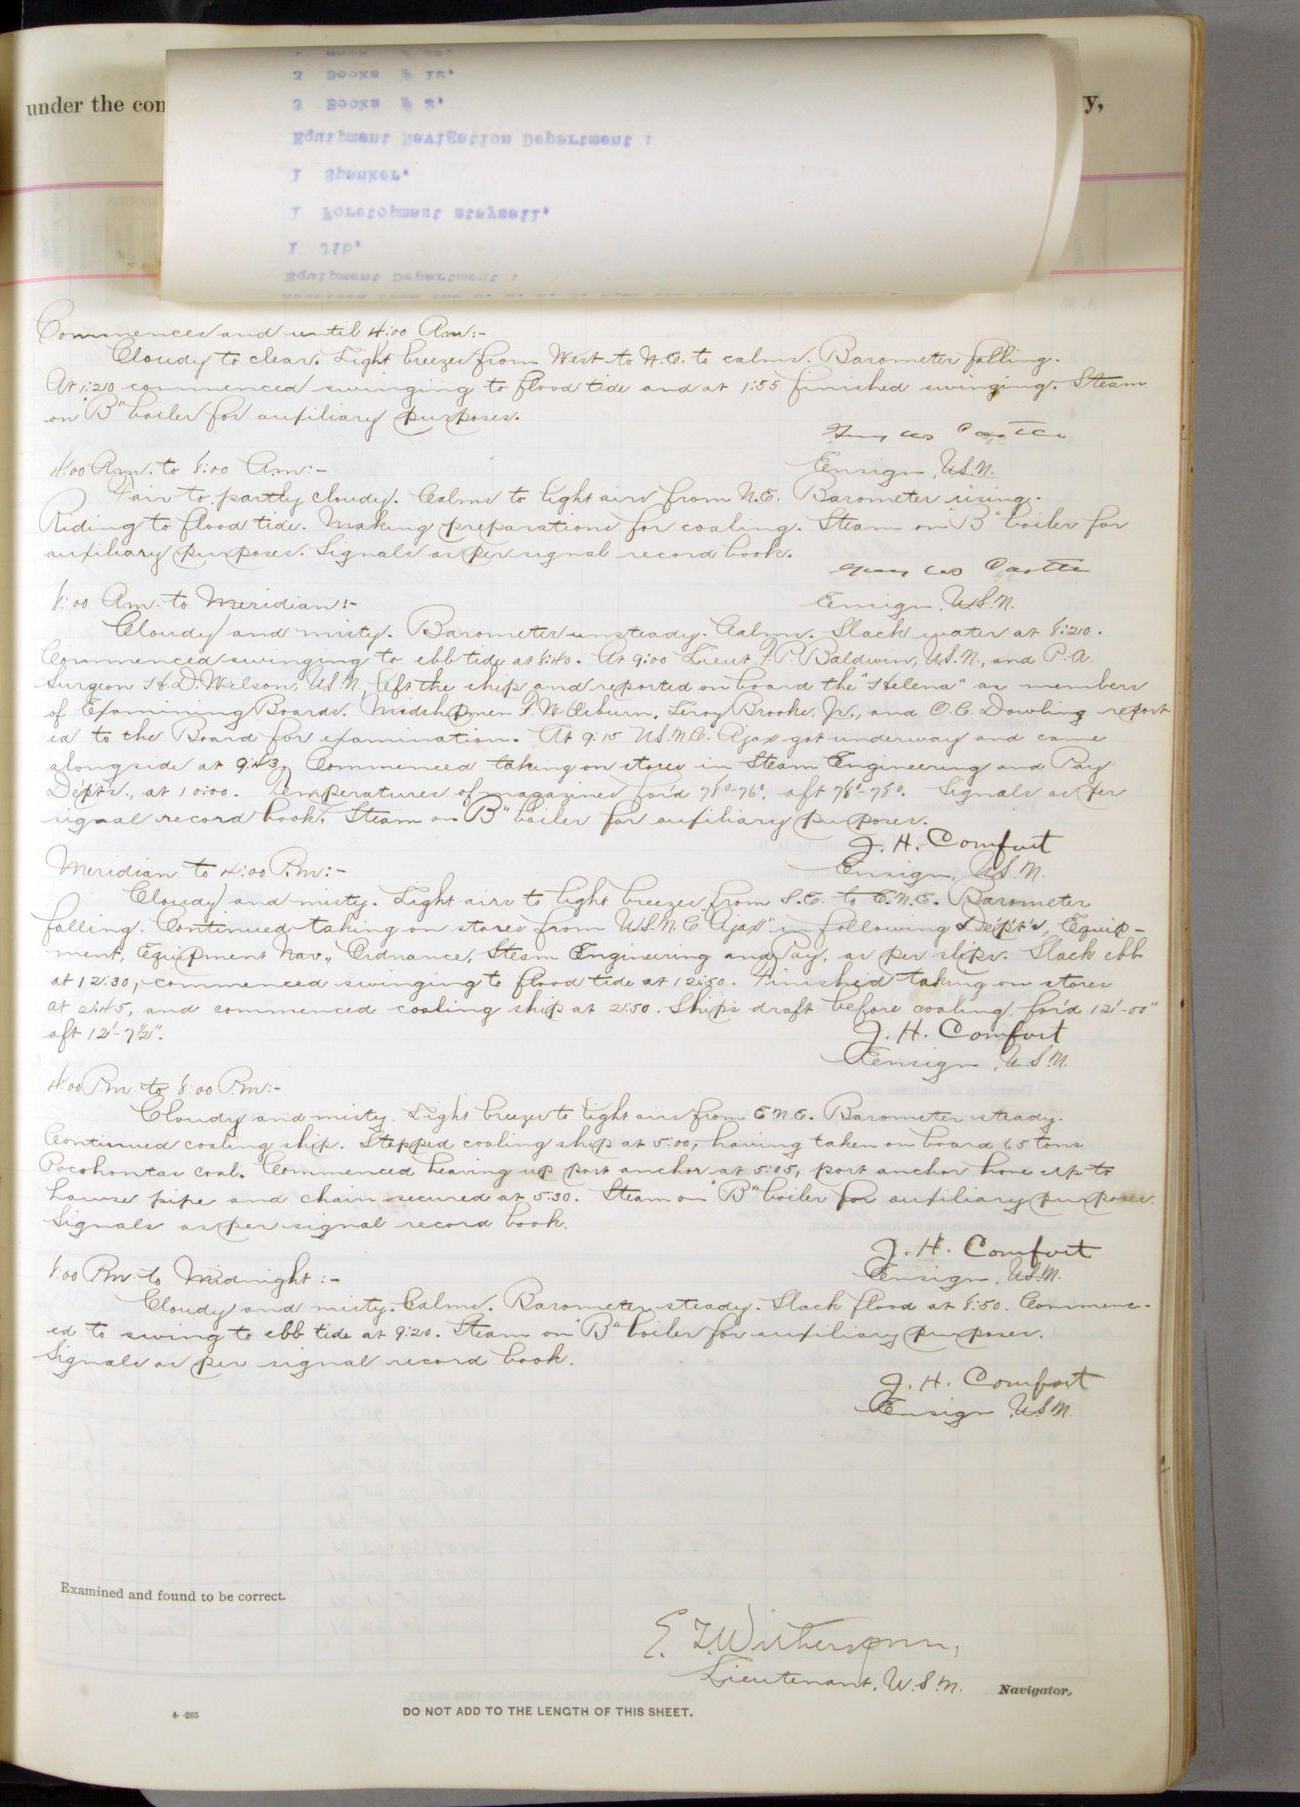 under the con
y,
2 Books ½ 12.
2 Books ½ 8.
Equipment Navigation Department :
1 Spanker.
1 Foretopmast Staysail.
1 Jib.
Equipment Department :
Commences and until 4:00 Am:-
Cloudy to clear. Light breezes from West to N.E. to calms. Barometer falling.
At 1:20 commenced swinging to flood tide and at 1:55 finished swinging. Steam
on "B" boiler for auxiliary purposes.
Ensign, U.S.N.
4:00 Am. to 8:00 Am:-
Fair to partly cloudy. Calms to light airs from N.E. Barometer rising.
Riding to flood tide. Making preparations for coaling. Steam on "B" boiler for
auxiliary purposes. Signals as per signal record book.
Ensign, U.S.N.
8:00 Am. to Meridian:-
Cloudy and misty. Barometer unsteady. Calms. Slack water at 8:20.
Commenced swinging to ebb tide at 8:40. At 9:00 Lieut F.P. Baldwin, U.S.N., and P.A.
Surgeon H.D. Wilson, U.S.N., left the ship and reported on board the "Helena" as members
of Examining Boards. Midshipmen F.W. Osburn, Leroy Brooks, Jr., and O.C. Dowling report
ed to the Board for examination. At 9:15 U.S.N.C. Ajax got underway and came
alongside at 9:43. Commenced taking on stores in Steam Engineering and Pay
Dep't's., at 10:00. Temperatures of magazines for'd 78°-76°, aft 78°-78°. Signals as per
signal record book. Steam on "B" boiler for auxiliary purposes.
J. H. Comfort
Ensign, U.S.N.
Meridian to 4:00 P.m:-
Cloudy and misty. Light airs to light breezes from S.E. to E.N.E. Barometer
falling. Continued taking on stores from U.S.N.C "Ajax" in following Dep't's, Equip-
ment, Equipment Nav., Ordnance, Steam Engineering and Pay, as per slips. Slack ebb
at 12:30, commenced swinging to flood tide at 12:50. Finished taking on stores
at 2:45, and commenced coaling ship at 2:50. Ship's draft before coaling, for'd 12'-00"
aft 12'-7½".
J. H. Comfort
Ensign, U.S.N.
4:00 P.m. to 8:00 P.m:-
Cloudy and misty. Light breezes to light airs from E.N.E. Barometer steady.
Continued coaling ship. Stopped coaling ship at 5:00, having taken on board 65 tons
Pocohontas coal. Commenced heaving up port anchor at 5:05, port anchor hove up to
hawse pipe and chain secured at 5:30. Steam on "B" boiler for auxiliary purposes.
Signals as per signal record book.
J. H. Comfort
Ensign, U.S.N.
8:00 P.m. to Midnight:-
Cloudy and misty. Calms. Barometer steady. Slack flood at 8:50. Commenc-
ed to swing to ebb tide at 9:20. Steam on "B" boiler for auxiliary purposes.
Signals as per signal record book.
J. H. Comfort
Ensign, U.S.N.
Examined and found to be correct.
E. F. Witherspoon,
Lieutenant, U.S.N. Navigator.
4-265
DO NOT ADD TO THE LENGTH OF THIS SHEET.